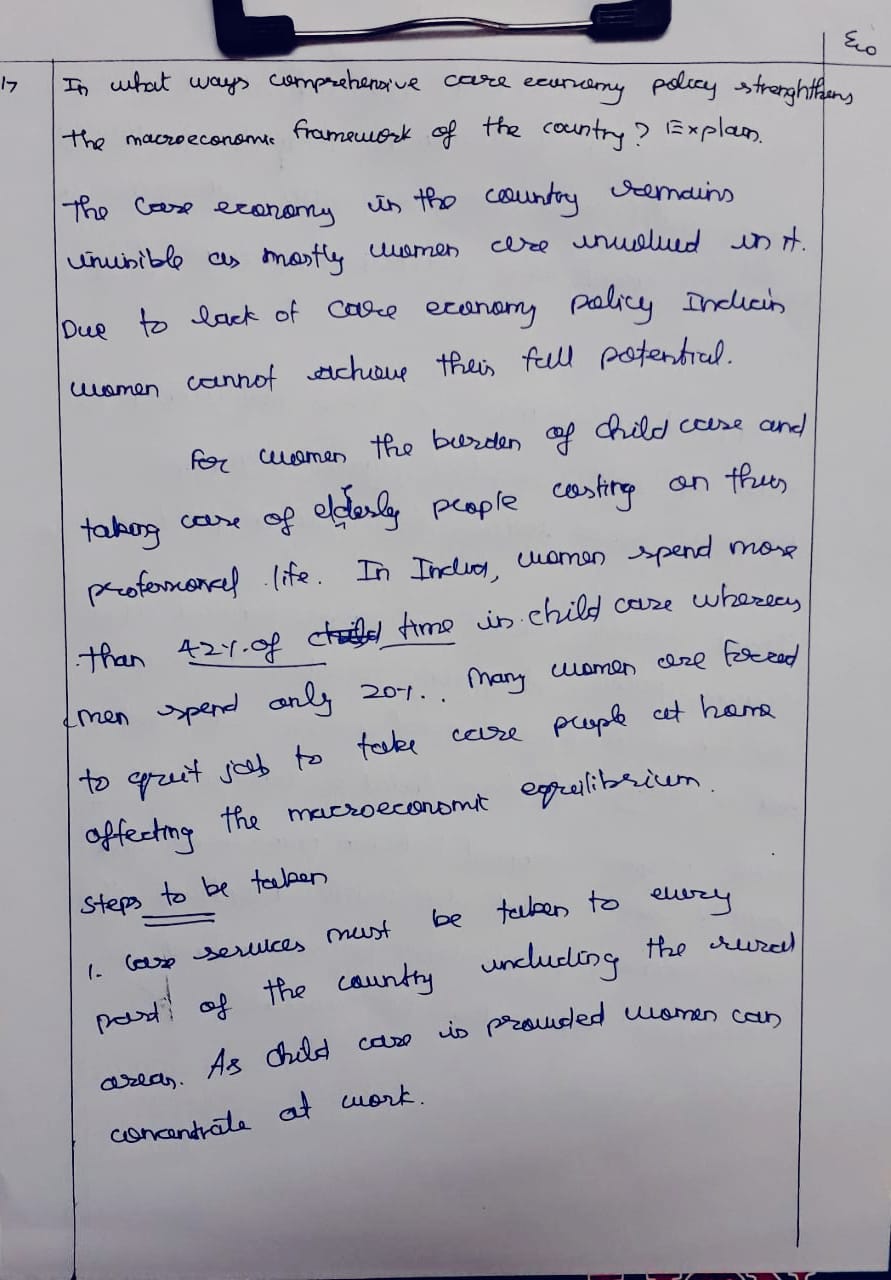 Eco
17 In what ways comprehensive care economy policy strenghthens
the macroeconomic framework of the country? Explain.
The Care economy in the country remains
invisible as mostly women are involved in it.
Due to lack of care economy policy Indian
women cannot achieve their full potential.
For women the burden of child care and
taking care of elderly people costing on their
professional life. In India, women spend more
than 42% of time in child care whereas
men spend only 20%. Many women are forced
to quit job to take care people at home
affecting the macroeconomic equilibrium.
Steps to be taken
1. Care services must be taken to every
part of the country including the rural
areas. As child care is provided women can
concentrate at work.